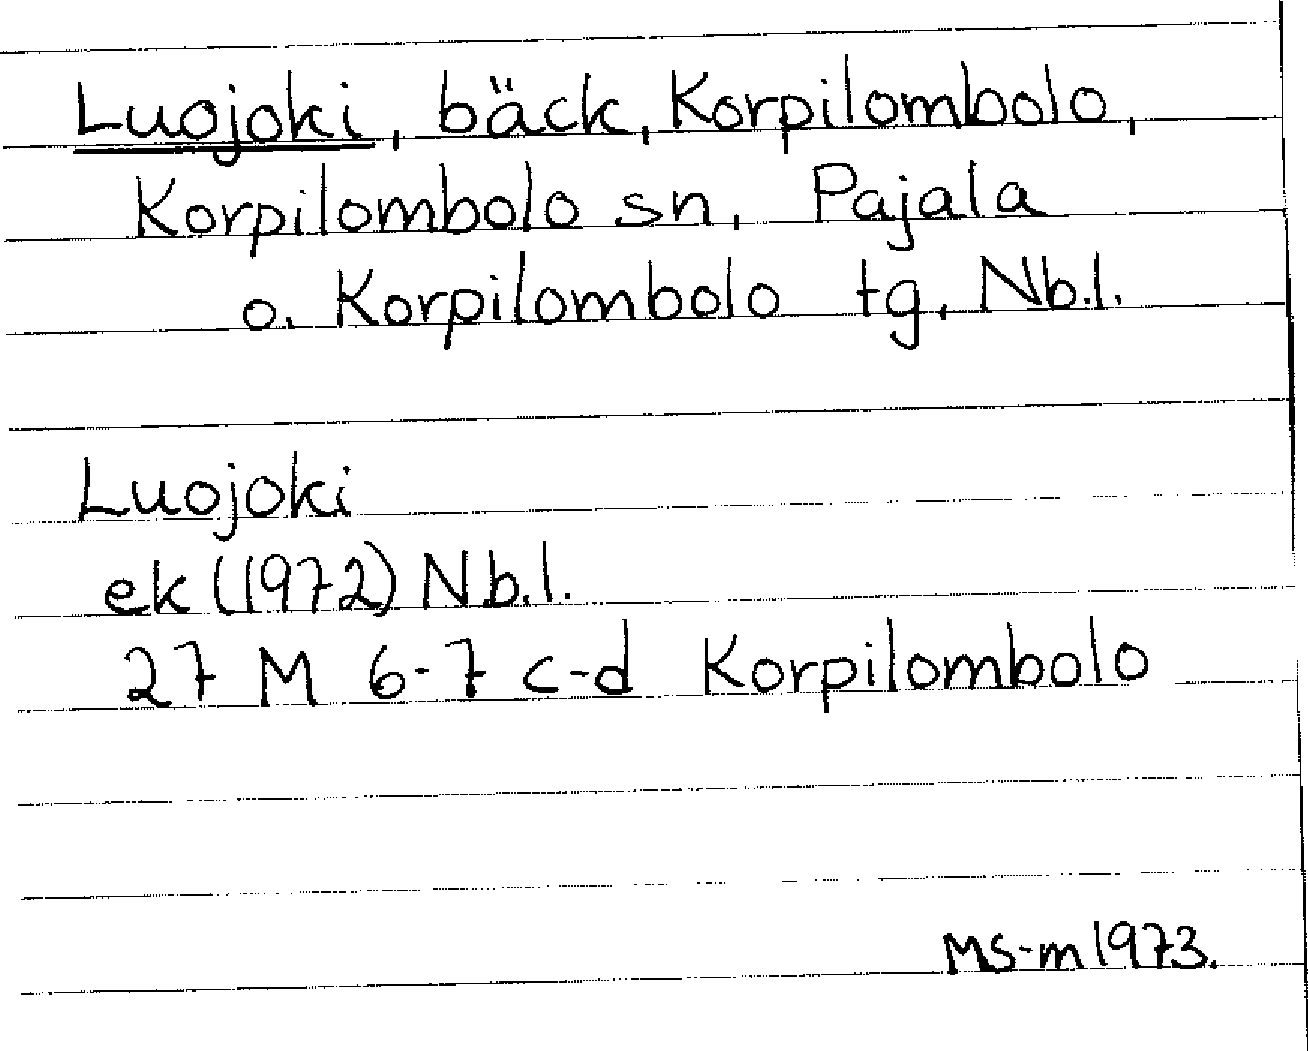 Luojoki, bäck, Korpilombolo,
Korpilombolo sn, Pajala
o. Korpilombolo tg, Nb.l.
Luojoki
ek (1972) Nb.l.
27 M 6-7 c-d Korpilombolo
MS-m 1973.